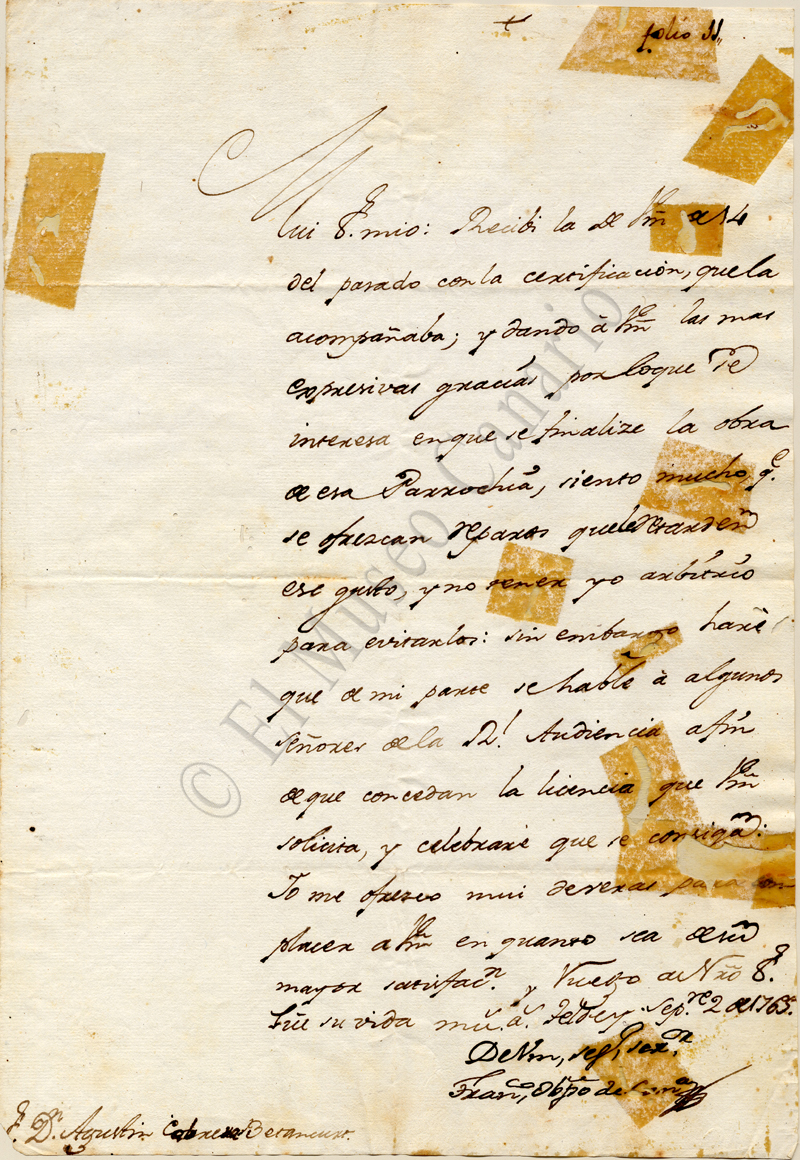 folio 11„
Mui S.r mio: Recibi la de Vm de 14
del pasado con la certificacion, que la
acompañaba; y dando à Vm las mas
expresivas gracias por lo que se
interesa en que se finalize la obra
de esa Parrochia, siento mucho q.e
se ofrescan reparos que le retarden
ese gusto, y no tener yo arbitrio
para evitarlos: sin embargo harè
que de mi parte se hable à algunos
señores de la R.l Audiencia a fin
de que concedan la licencia que Vm
solicita, y celebrarè que se consiga:
Yo me ofresco mui deveras para com
placer a Vm en quanto sea de su
mayor satisfac.n y Ruego a Nrô S.r
gũe su vida m.s a.s Telde y Sep.re 2 de 1765.
De Vm, seg.o ser.or
Fran.co, Obpo de Can.a
S.r D.n Agustin Cabrera Betancurt.
© El Museo Canario